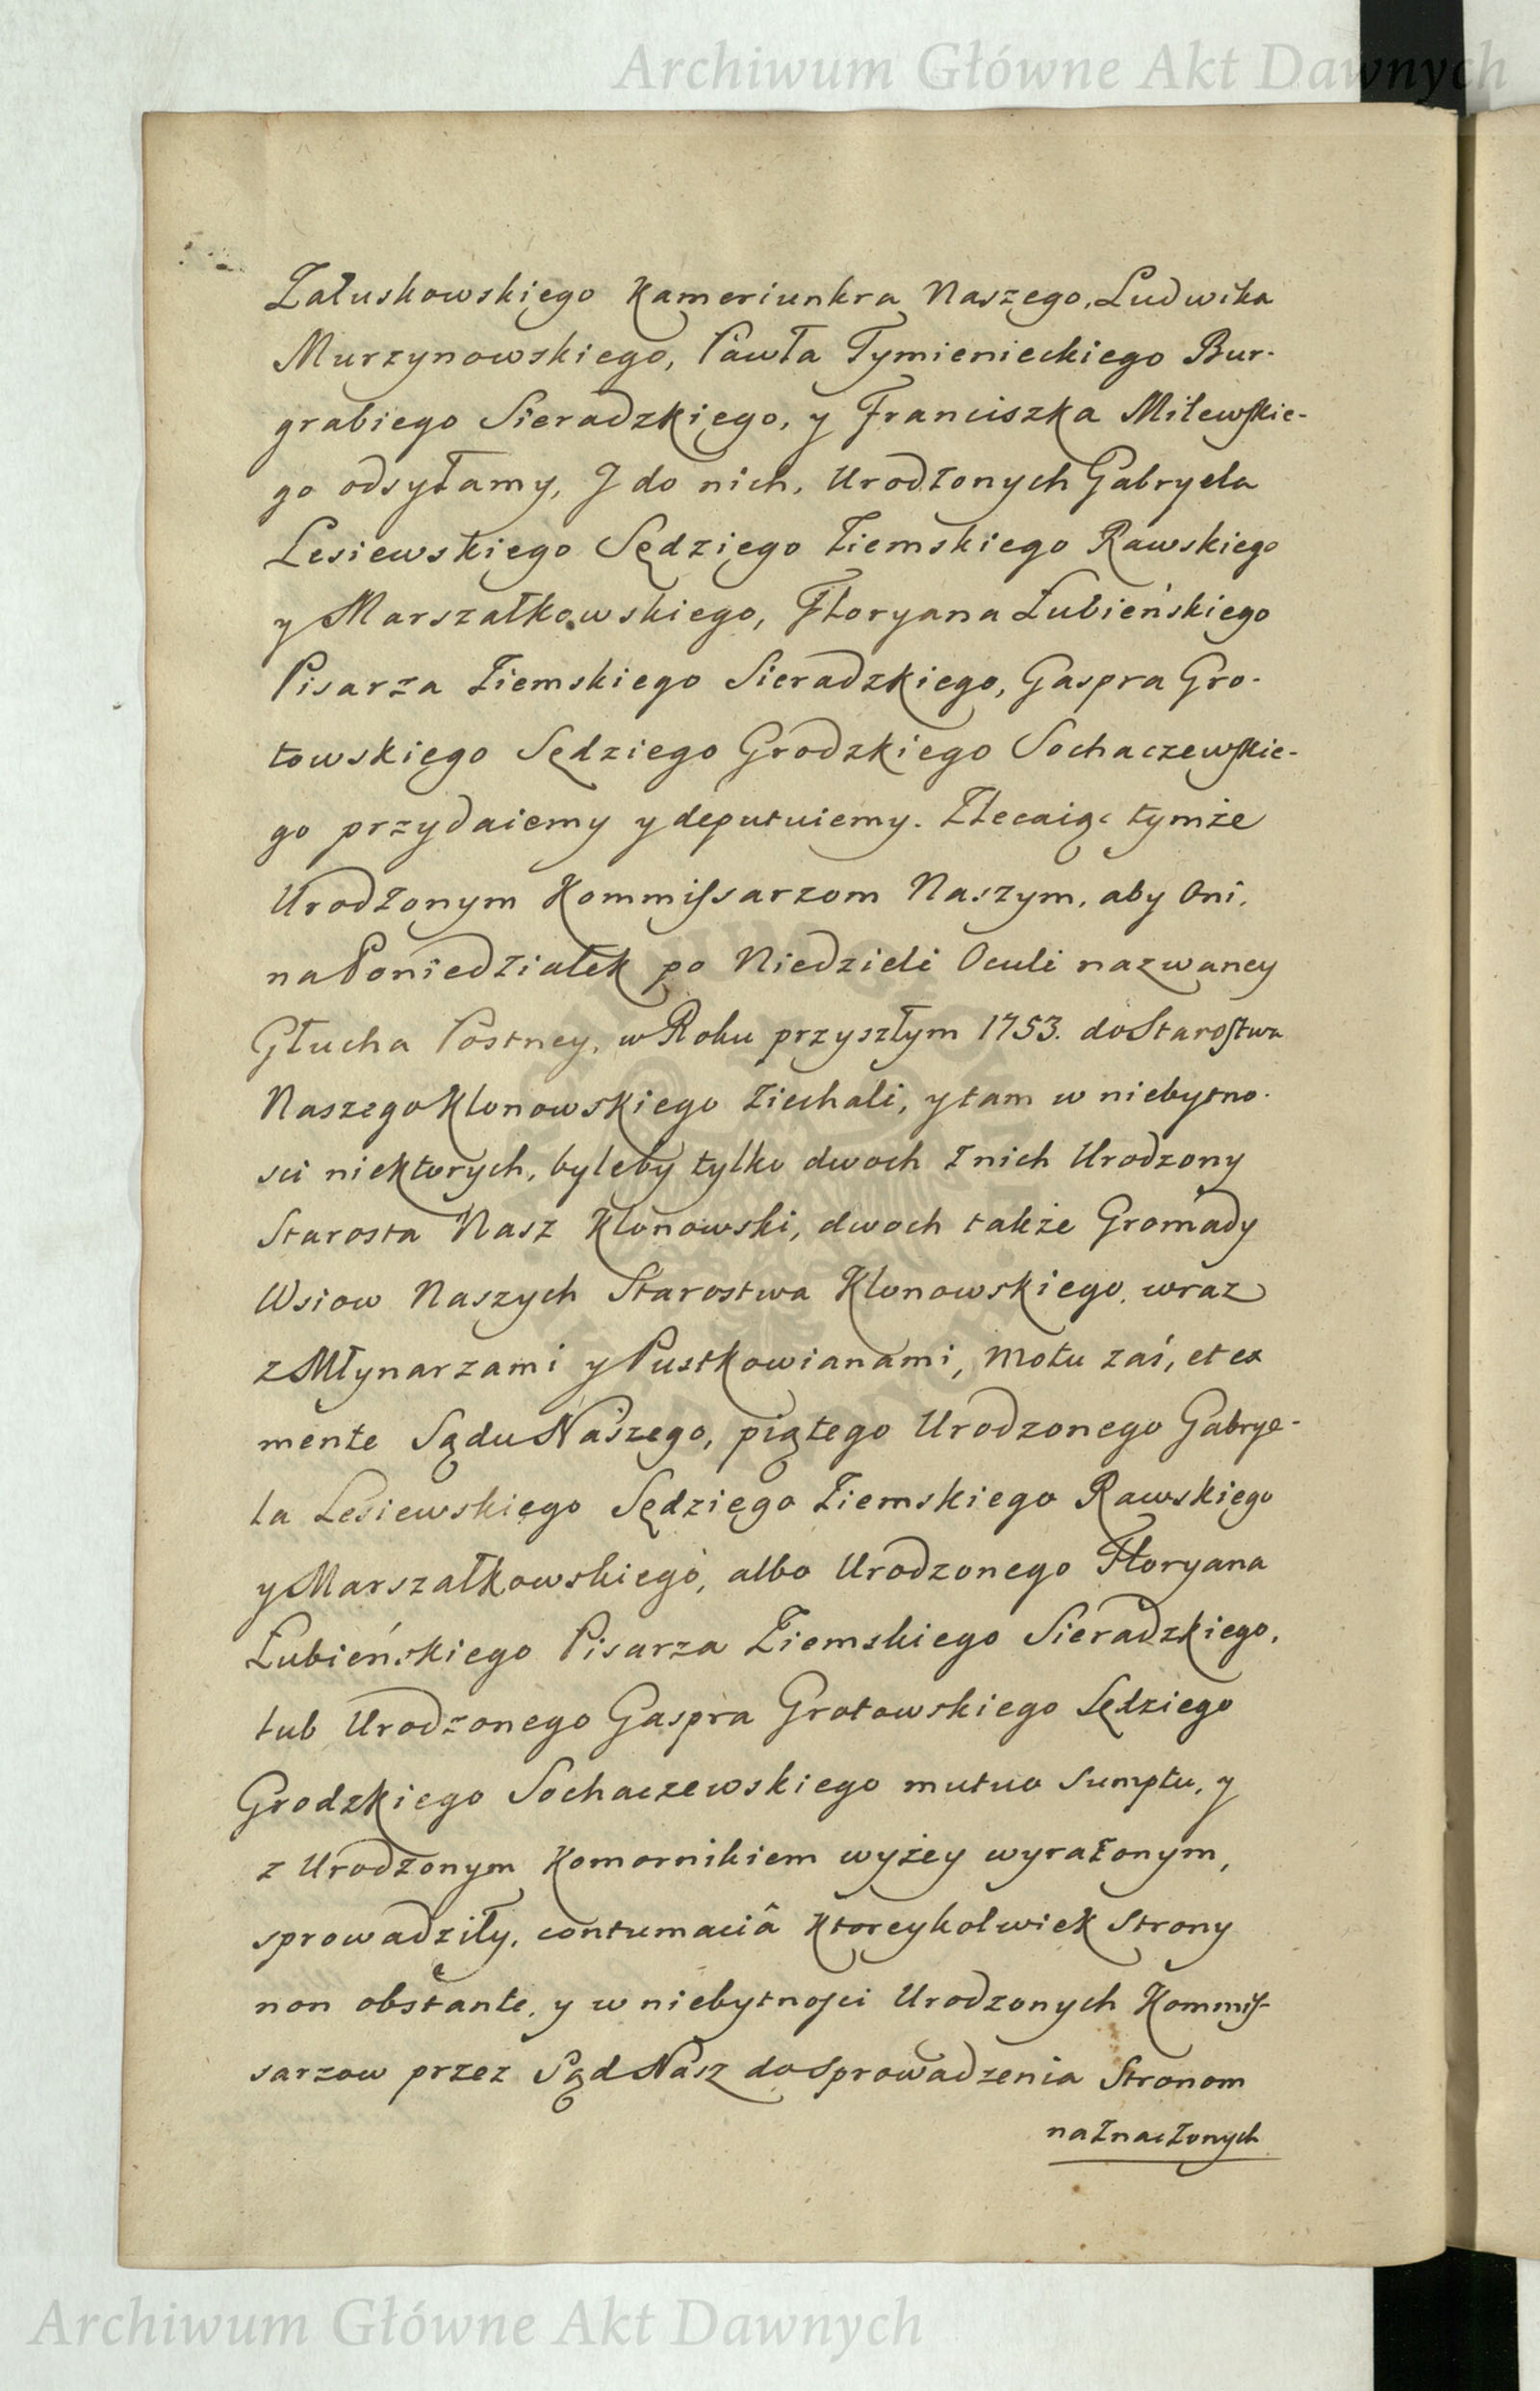 Archiwum Główne Akt Dawnych
Załuskowskiego Kameriunkra Naszego, Ludwika
Murzynowskiego, Pawła Tymienieckiego Bur-
grabiego Sieradzkiego, y Franciszka Milewskie-
go odsyłamy, J do nich, Urodzonych Gabryela
Lesiewskiego Sędziego Ziemskiego Rawskiego
y Marszałkowskiego, Floryana Łubieńskiego
Pisarza Ziemskiego Sieradzkiego, Gaspra Gro-
towskiego Sędziego Grodzkiego Sochaczewskie-
go przydaiemy y deputuiemy. Zlecaiąc tymże
Urodzonym Kommissarzom Naszym, aby Oni,
na Poniedziałek po Niedzieli Oculi nazwaney
Głucha Postney, w Roku przyszłym 1753. do Starostwa
Naszego Klonowskiego Ziechali, y tam w niebytno-
sci niektorych, byleby tylko dwoch z nich Urodzony
Starosta Nasz Klonowski, dwoch także Gromady
Wsiow Naszych Starostwa Klonowskiego, wraz
z Młynarzami y Pustkowianami, Motu zaś, et ex
mente Sądu Naszego, piątego Urodzonego Gabrye-
la Lesiewskiego Sędziego Ziemskiego Rawskiego
y Marszałkowskiego, albo Urodzonego Floryana
Łubieńskiego Pisarza Ziemskiego Sieradzkiego,
lub Urodzonego Gaspra Grotowskiego Sędziego
Grodzkiego Sochaczewskiego mutuo sumptu, y
z Urodzonym Komornikiem wyżey wyrażonym,
sprowadziły, contumaciâ ktoreykolwiek Strony
non obstante, y w niebytności Urodzonych Kommis-
sarzow przez Sąd Nasz do sprowadzenia Stronom
naznaczonych
Archiwum Główne Akt Dawnych